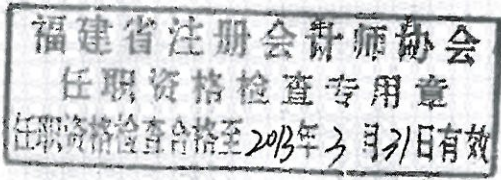 福建省注册会计师协会
任职资格检查专用章
任职资格检查合格至2013年3月31日有效